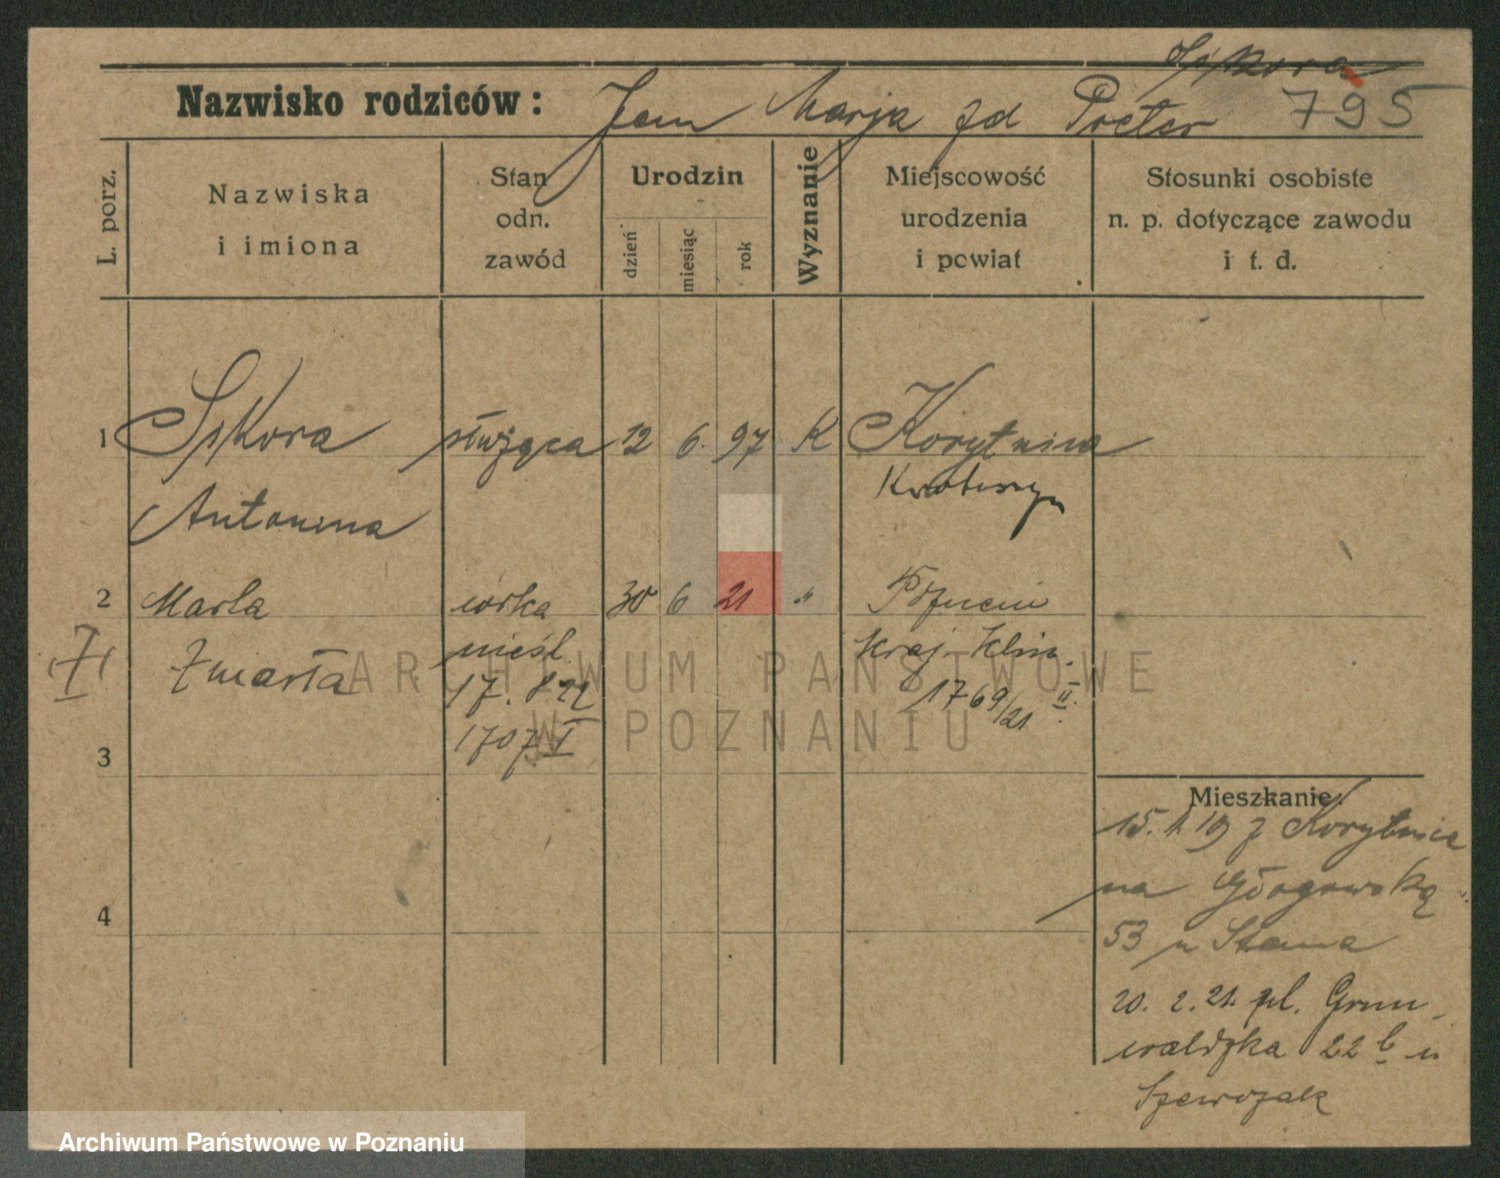 Sikora
Nazwisko rodziców: Jan Marja zd Preter 795
L. porz.
Nazwiska
i imiona
Stan
odn.
zawód
Urodzin
dzień
miesiąc
rok
Wyznanie
Miejscowość
urodzenia
i powiat
Stosunki osobiste
n. p. dotyczące zawodu
i t. d.
1 Sikora służąca 12 6. 97 K Korytnica
Krotoszyn
Antonina
2 Marta córka 30 6 21 " Poznań
nieśl. Kraj. Klin.
Zmarła
17. 8 22 1769/21 II.
1707 I
3
4
ARCHIWUM PAŃSTWOWE
W POZNANIU
Mieszkanie:
15. 1. 19 z Korytnica
na Głogowską
53 u Stama
20. 2. 21. pl. Grun-
waldzka 22 b u
Szewczak
Archiwum Państwowe w Poznaniu